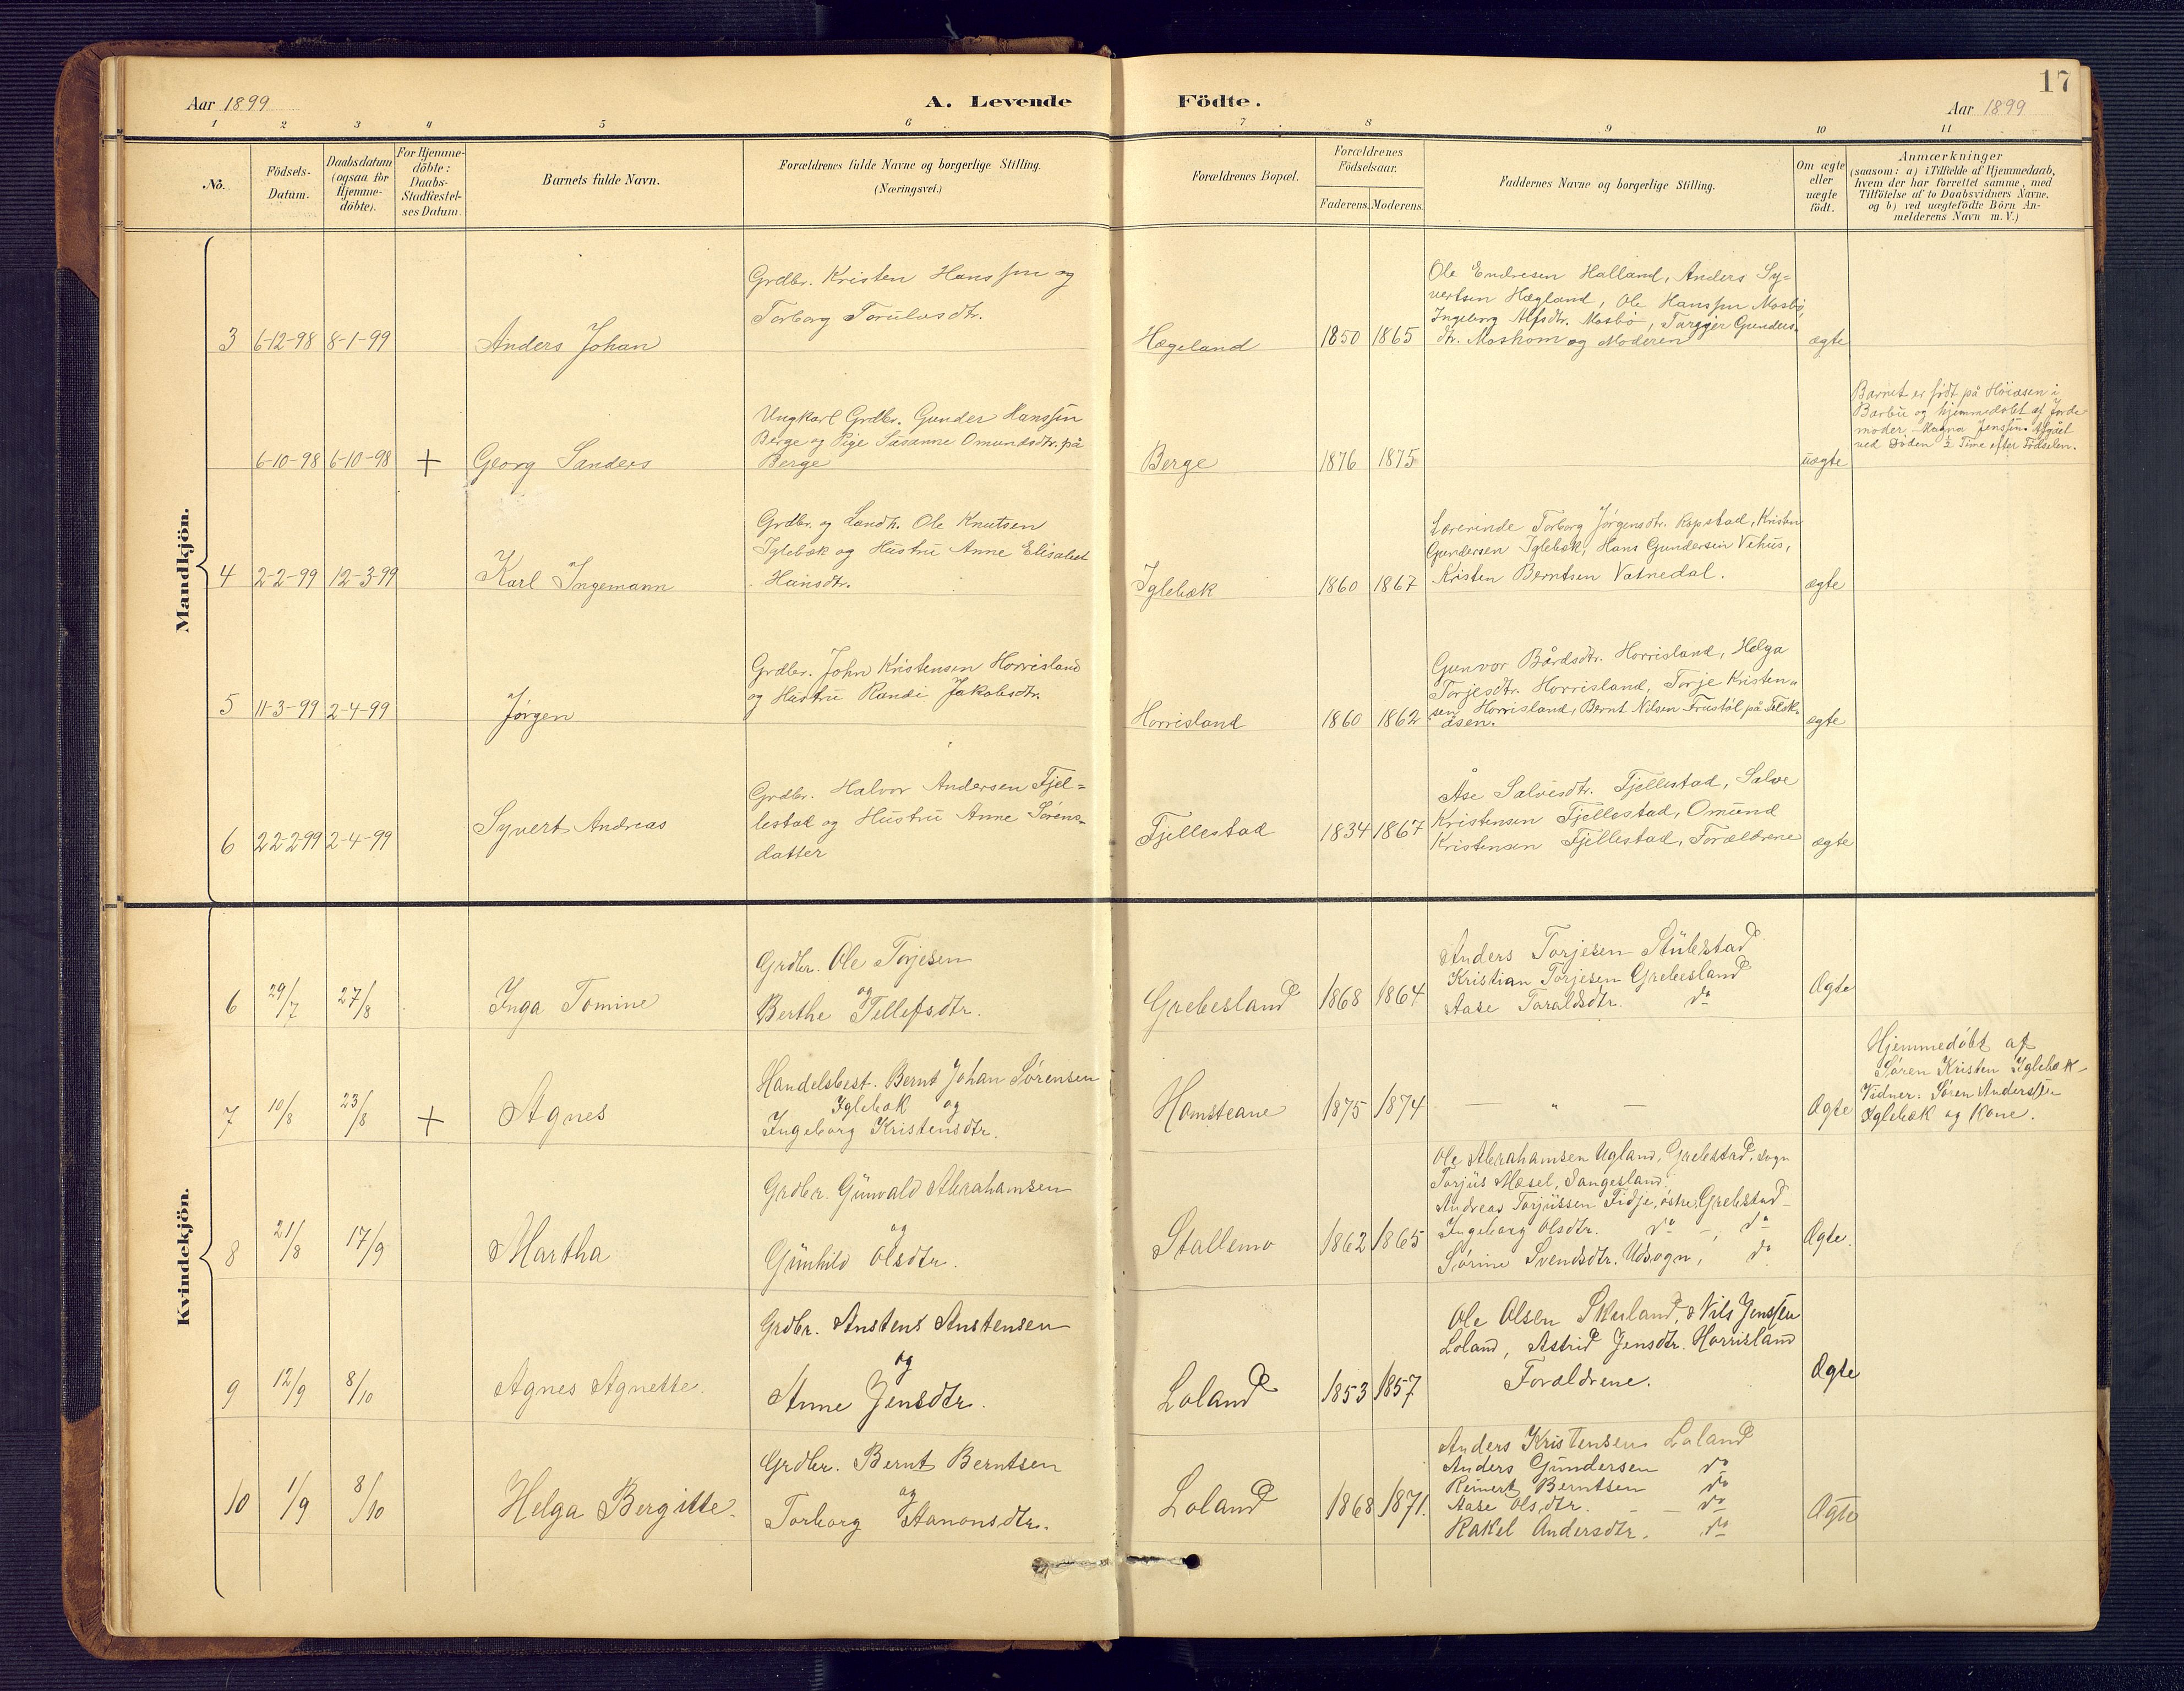 17
Aar 1899
A. Levende Födte.
Aar 1899
1 2 3 4 5 6 7 8 9 10 11
No.
Födsels-Datum.
Daabsdatum (ogsaa for Hjemme-döbte).
For Hjemme-döbte: Daabs-Stadfæstel-ses Datum.
Barnets fulde Navn.
Forældrenes fulde Navne og borgerlige Stilling.
(Næringsvei.)
Forældrenes Bopæl.
Forældrenes Födselsaar.
Faderens. Moderens.
Faddernes Navne og borgerlige Stilling.
Om ægte eller uægte födt.
Anmærkninger
(saasom: a) i Tilfælde af Hjemmedaab,
hvem der har forrettet samme, med
Tilföielse af to Daabsvidners Navne.
og b) ved uægtefödte Börn An-
melderens Navn m. V.)
Mandkjön.
3 6-12-98 8-1-99 Anders Johan
Grdbr. Kristen Hanssen og
Torborg Torulvsdtr.
Hægeland 1850 1865
Ole Endresen Halland, Anders Sy=
vertsen Hægland, Ole Hanssen Mosbø,
Ingeborg Alfsdtr. Mosbø, Targjer Gunders-
dtr. Moshom og Moderen
ægte
6-10-98 6-10-98 + Georg Sanders
Ungkarl Grdbr. Gunder Hanssen
Berge og Pige Susanne Omundsdtr. på
Berge
Berge 1876 1875
uægte
Barnet er født på Høiåsen i
Barbu og hjemmedøbt af Jorde
moder Magna Jenssen. Afgået
ved Døden ½ Time efter Fødselen.
4 2-2-99 12-3-99 Karl Ingemann
Grdbr. og Landh. Ole Knutsen
Iglebæk og Hustru Anne Elisabet
Hansdtr.
Iglebæk 1860 1867
Lærerinde Torborg Jørgensdtr. Ropstad, Kristen
Gundersen Iglebæk, Hans Gundersen Vehus,
Kristen Berntsen Vatnedal.
ægte
5 11-3-99 2-4-99 Jørgen
Grdbr. John Kristensen Horrisland
og Hustru Randi Jakobsdtr.
Horrisland 1860 1862
Gunvor Bårdsdtr. Horrisland, Helga
Torjesdtr. Horrisland, Torje Kristen=
sen Horrisland, Bernt Nilsen Frustøl på
åsen.
ægte
6 22-2-99 2-4-99 Syvert Andreas
Grdbr. Halvor Andersen Fjel=
lestad og Hustru Anne Sørens=
datter
Fjellestad 1834 1867
Åse Salvesdtr. Fjellestad, Salve
Kristensen Fjellestad, Omund
Kristensen Fjellestad, Forældrene
ægte
Kvindekjön.
6 29/7 27/8 Inga Tomine
Grdbr. Ole Torjesen
og
Berthe Tellefsdtr.
Grebesland 1868 1864
Anders Torjesen Stubstad
Kristian Torjesen Grebesland
Aase Taraldsdtr. do
Ægte
7 10/8 23/8 + Agnes
Handelsbest. Bernt Johan Sørensen
Iglebæk og
Ingeborg Kristensdtr.
Homsteane 1875 1874
— " —
Ægte
Hjemmedøbt af
Søren Kristen Iglebæk
Vidner: Søren Anderssen
Iglebæk og Kone.
8 21/8 17/9 Martha
Grdbr. Gunvald Abrahamsen
og
Gunhild Olsdtr.
Stallemo 1862 1865
Ole Abrahamsen Ugland, Grebstad, sogn
Torjus Mæsel, Sangesland.
Andreas Torjussen Fidje, østre, Grebstad
Ingeborg Olsdtr. do -, do
Sørine Svendsdtr. Udsogn, do
Ægte.
9 12/9 8/10 Agnes Agnette.
Grdbr. Anstens Anstensen
og
Anne Jensdtr.
Loland 1853 1857
Ole Olsen Skusland, Nils Jenssen
Loland, Astrid Jensdtr. Horrisland
Forældrene.
Ægte
10 1/9 8/10 Helga Bergitte.
Grdbr. Bernt Berntsen
og
Torborg Aanonsdtr.
Loland 1868 1871.
Anders Kristensen Loland
Anders Gundersen do
Reinert Berntsen do
Aase Olsdtr. — do
Rakel Andersdtr. do
Ægte